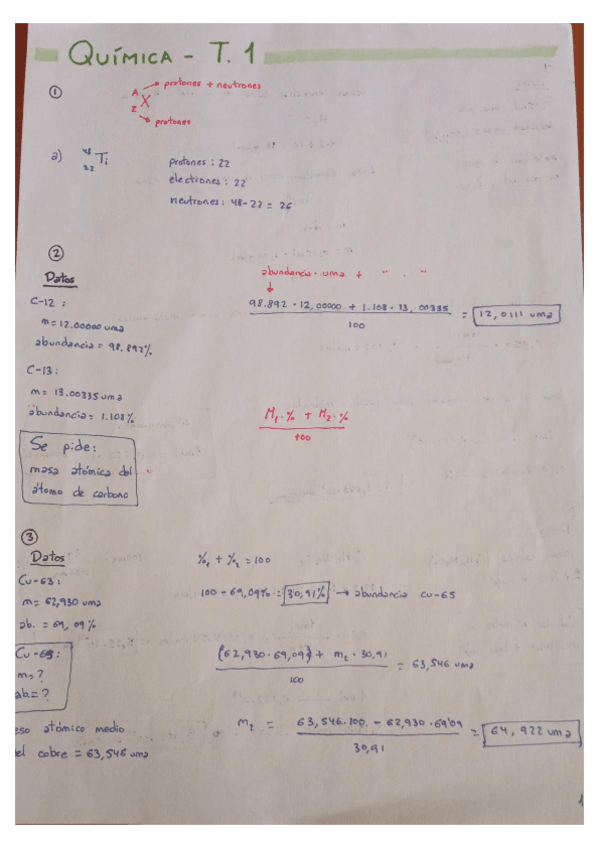 QUÍMICA - T. 1
①
A → protones + neutrones
X
Z → protones
a) 48 22 Ti
protones: 22
electrones: 22
neutrones: 48-22 = 26
②
Datos
C-12:
m=12.00000 uma
abundancia = 98.892%
C-13:
m= 13.00335 uma
abundancia = 1.108%
Se pide:
masa atómica del
átomo de carbono
abundancia · uma + " . "
↓
98.892 · 12,00000 + 1.108 · 13,00335 = 12,0111 uma
100
M₁·% + M₂·%
100
③
Datos
Cu-63:
m= 62,930 uma
ab. = 69,09%
Cu-65:
m=?
ab.= ?
eso atómico medio
el cobre = 63,546 uma
%₁ + %₂ = 100
100 - 69,09% = 30,91% → abundancia cu-65
(62,930·69,09) + m₂ · 30,91 = 63,546 uma
100
m₂ = 63,546·100 - 62,930·69'09 = 64,922 uma
30,91
1